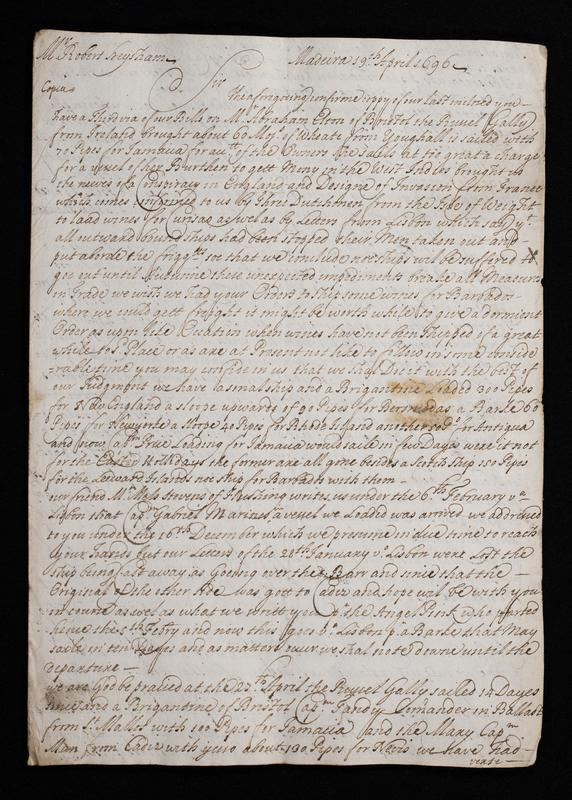 Mr. Robert Heysham Madeira 19th April 1696
Copia Sir
The aforegoing confirme coppy of our last inclosed you
have a Third via of our Bills on Mr. Abraham Elton of Bristol the Prewel Gally
from Ireland brought about 60 Moys of Wheate from Youghall is sailed with
70 Pipes for Jamaica for acct. of the Owners Are sails at too great a charge
for a vessel of her Burthen to gett Mony in the West Indies brought us
the newes of a Conspiracy in England and Designe of Invasion from France
which comes confirmed to us by three Dutchmen from the Isle of Weight
to load wines for as well as by Letters from Lisbon which says yt.
all outward bound ships had been stopted their Men taken out and
put aborde the friggtts. soe that we conclude noe ships will be suffered to
goe out until these unexpected impediments breake all Measures
in Trade we wish we had your Orders to ship some wines for Barbados
where we could gett freight it might be worth while to give a dormient
Order as upon like Ocation when wines have not ben shipped of a great
while to yt. Place or as are at Present not like to follow in some conside
=rable time you may confide in us that we shal Doe it with the best of
our Judgment we have a smal ship and a Brigantine Loaded 300 Pipes
for New England a sloope upwards of 90 Pipes for Bermudas a Barke 60
Pipes for Newyorke a sloope 40 Pipes for Rhode Island another for Antigua
and now Capn. Loading for Jamaica would saile in few Dayes were it not
for the Easter Hollidays the former are all gone besides a Scotch ship 150 Pipes
for the Leeward Islands not ship for Barbados with them
our friend Mr. Stevens of Flushing writes us under the 6th February va.
Lisbon that Capt. Gabriel a vessel we Loaded was arrived we addressed
to you under the 16th December which we presume in due time to reach
your hands but our Letters of the 28th January va. Lisbon were Lost the
ship being Cast away as Goeing over the Barr and since that the
Original of the other side was gott to Cadiz and hope wil be with you
in course as wel as what we write you pr. the Angel Pink who parted
hence the 5th Febry and now this goes va. Lisbon p. a Barke that May
saile in ten Dayes and as matters occur we shal note downe until the
departure
we are God be praised at the 25th April the Prewel Gally sailed 14 Dayes
since and a Brigantine of Bristol Capn. Comander in Ballast
from St. Malos with 100 Pipes for Jamaica and the Mary Capn.
Man from Cadiz with about 130 Pipes for Nevis we have had